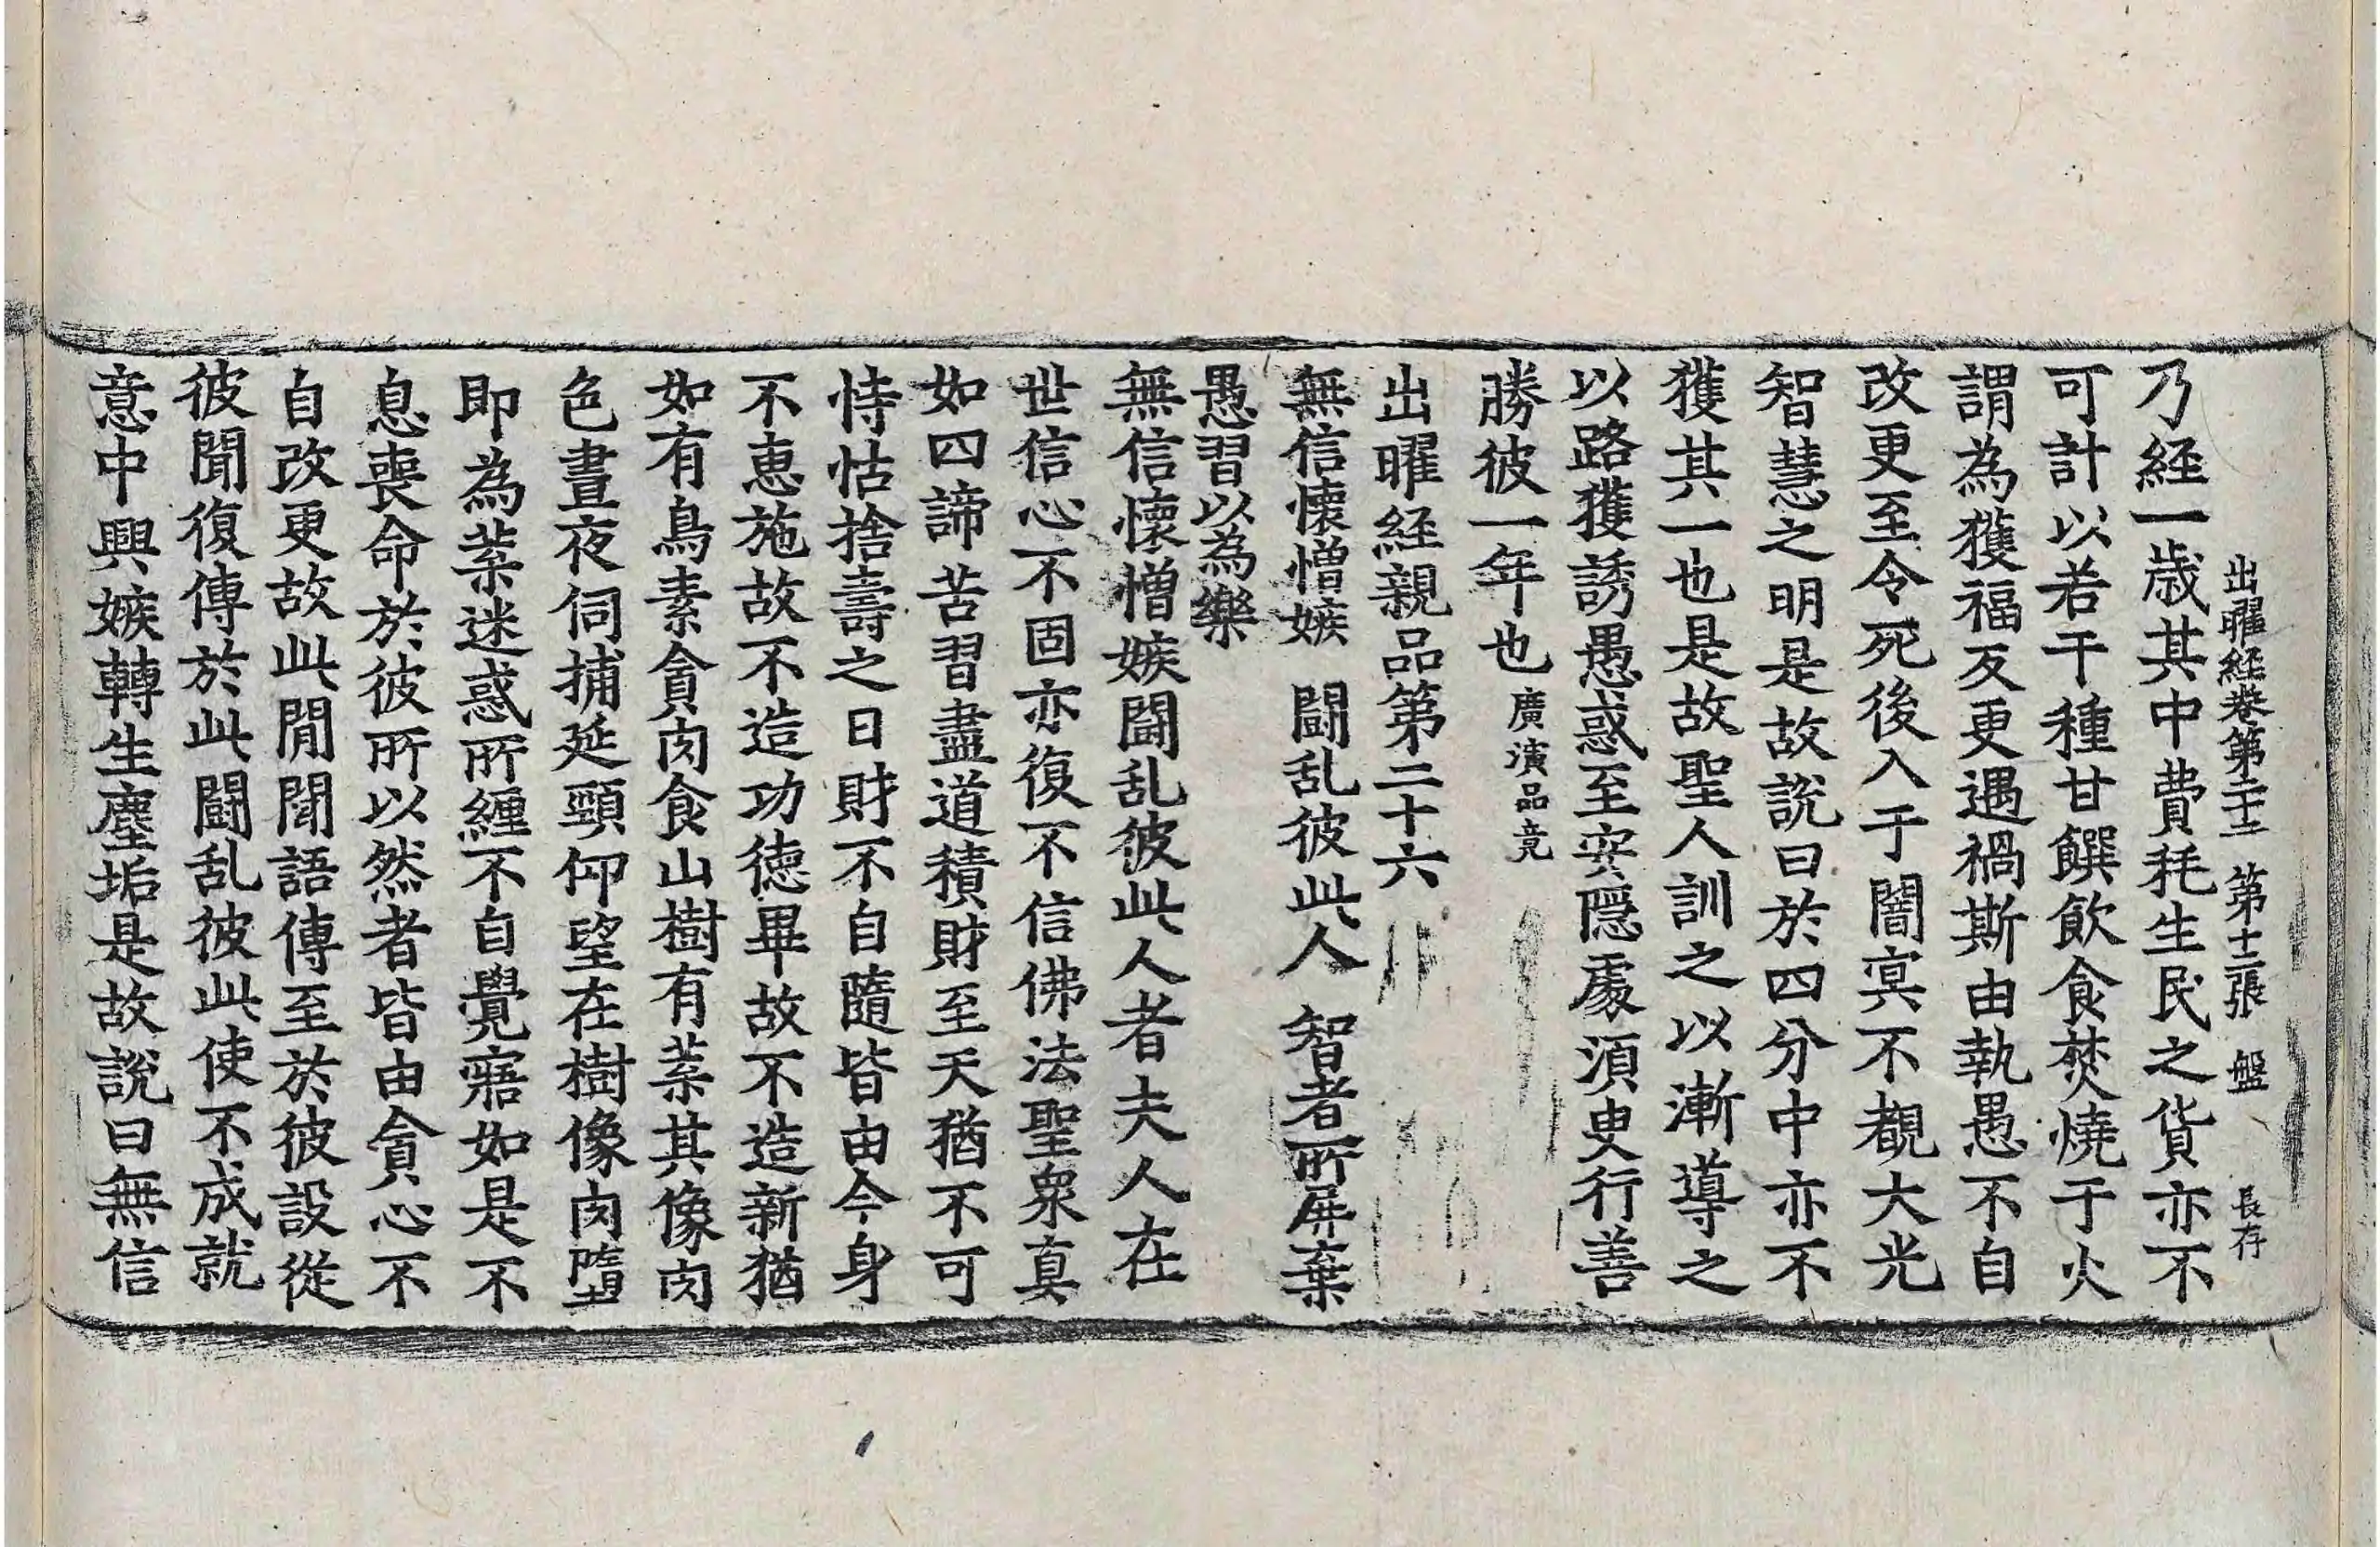 出曜経卷第二十二 第十二張 盤 長存
乃経一歳其中費耗生民之貨亦不
可計以若干種甘饌飲食焚燒于火
謂為獲福反更遇禍斯由執愚不自
改更至令死後入于闇㝠不覩大光
智慧之明是故說曰於四分中亦不
獲其一也是故聖人訓之以漸導之
以路獲誘愚惑至安隱處須臾行善
勝彼一年也 廣演品竟
出曜経親品第二十六
無信懷憎嫉 闘乱彼此人 智者所屏棄
愚習以為樂
無信懷憎嫉闘乱彼此人者夫人在
世信心不固亦復不信佛法聖衆真
如四諦苦習盡道積財至天猶不可
恃怙捨壽之日財不自隨皆由今身
不恵施故不造功德畢故不造新猶
如有鳥素貪肉食山樹有菓其像肉
色晝夜伺捕延頸仰望在樹像肉墮
即為菓迷惑所纏不自覺寤如是不
息喪命於彼所以然者皆由貪心不
自改更故此閒聞語傳至於彼設從
彼聞復傳於此闘乱彼此使不成就
意中興嫉轉生塵垢是故說曰無信